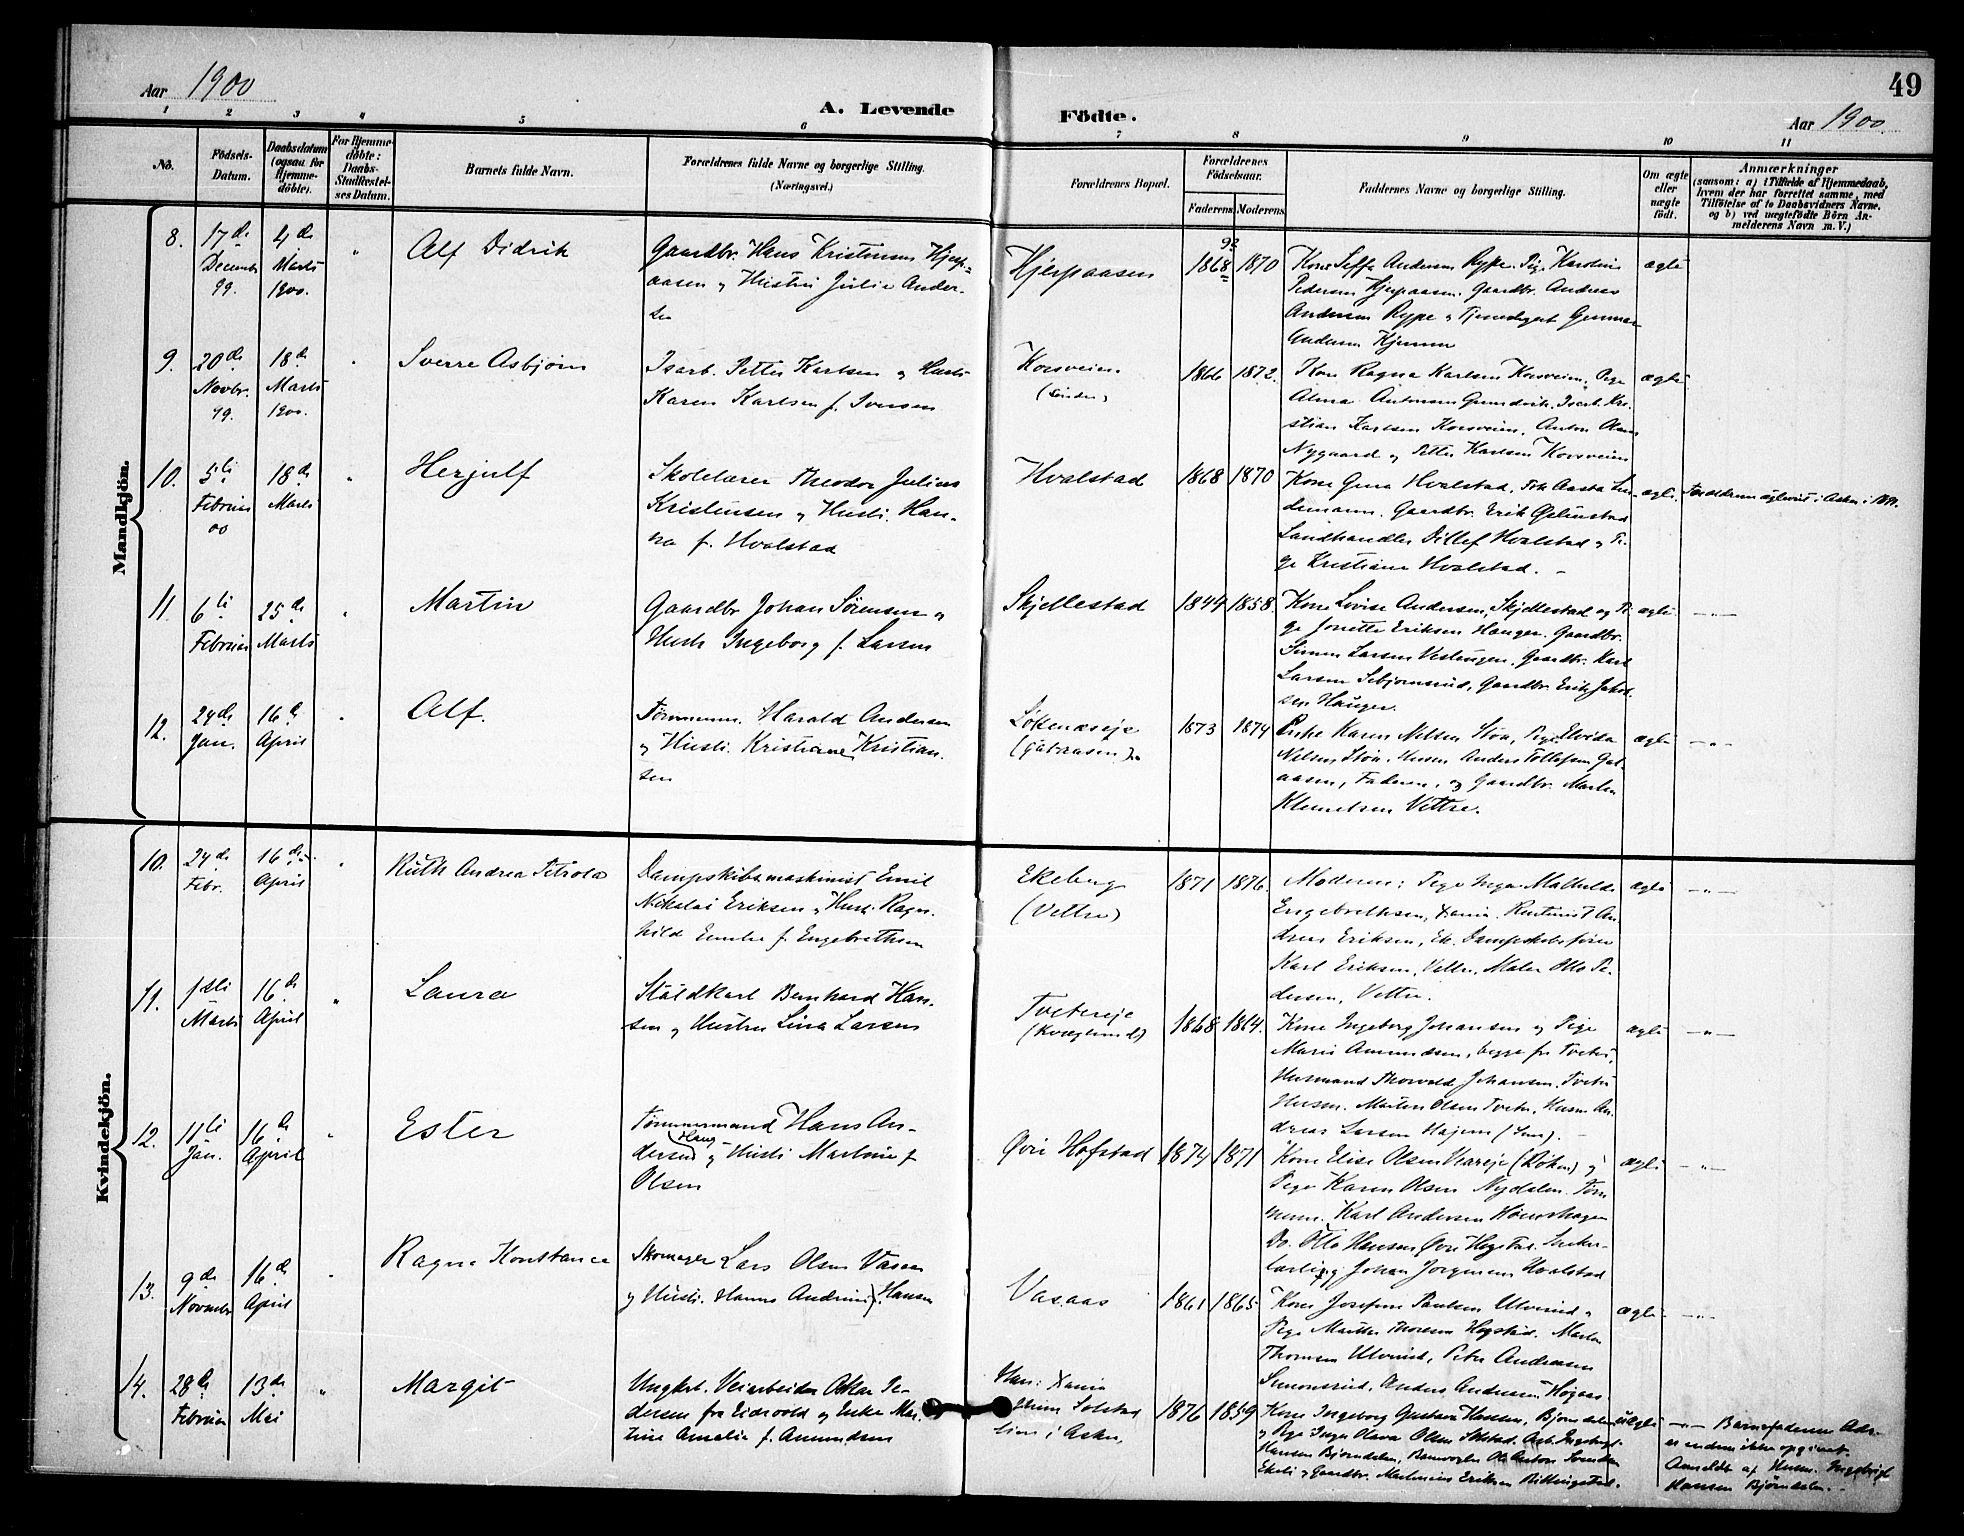 Aar 1900
A. Levende Födte.
Aar 1900
49
1 2 3 4 5 6 7 8 9 10 11
No.
Födsels-Datum.
Daabsdatum (ogsaa for Hjemme-döbte).
For Hjemme-döbte: Daabs-Stadfæstel-ses Datum.
Barnets fulde Navn.
Forældrenes fulde Navne og borgerlige Stilling.
(Næringsvei.)
Forældrenes Bopæl.
Forældrenes Födselsaar.
Faderens Moderens
Faddernes Navne og borgerlige Stilling.
Om ægte eller uægte födt.
Anmærkninger
(saasom: a) i Tilfælde af Hjemmedaab,
hvem der har forrettet samme, med
Tilföielse af to Daabsvidners Navne.
og b) ved uægtefödte Börn An-
melderens Navn m. V.)
Mandkjön.
8. 17de Decembr 99. 4de Marts 1900. "
Alf Didrik
Gaardbr. Hans Kristensen Hjerp-
aasen og Hustru Julie Ander-
sen
Hjerpaasen
1868 1870
Andersen Rype Pige Karoline
Pedersen Hjerpaasen. Gaardbr. Andreas
Andersen Rype og Gunnar
Andersen
ægte
9. 20de Novbr. 99. 18de Marts 1900. "
Sverre Asbjørn
Isarb. Petter Karlsen og Hustr
Karen Karlsen f. Iversen
Korsveien
(Søndre)
1866 1872.
Kone Ragna Karlsen Korsveien, Pige
Alma Antonsen Isarb. Kri-
stian Karlsen Korsveien, Anton Olsen
Nygaard og Petter Karlsen Korsveien
ægte
10. 5te Februar 00 18de Marts "
Herjulf
Skolelærer Theodor Julius
Kristensen og Hustr. Han-
na f. Hvalstad
Hvalstad
1868 1870
Kone Gina Hvalstad, Frk Aasta Lin-
demann. Gaardbr. Erik
Landhandler Ditlef Hvalstad og Pi-
ge Kristiane Hvalstad. -
ægte.
Forældrene ægteviet i Asker i
11. 6te Februar 25de Marts "
Martin
Gaardbr Johan Sørensen og
Hustr Ingeborg f. Larsen
Skjellestad
1849 1858.
Kone Lovise Andersen, Skjellestad og Pi-
ge Jonette Eriksen Hauger. Gaardbr.
Simen Larsen Gaardbr. Karl
Larsen Gaardbr. Erik
sen Hauger.
ægte
— " —
12. 24de Jan. 16de April "
Alf.
Tømmerm. Harald Andersen
og Hustr. Kristiane Kristian-
sen
Løkenæseje
1873 1874
Enke Karen Nilsen Støa, Pige
Nilsen Støa. Husm. Anders Tollefsen
aasen, Faderen, og Gaardbr. Martin
Klemetsen Vettre.
ægte
— " —
Kvindekjön.
10. 24de Febr. 16de April "
Ruth Andrea Petrola
Dampskibsmaskinist Emil
Nikolai Eriksen og Hustr. Ragn-
hild Emilie f. Engebrethsen
Ekeberg
(Vettre)
1871 1876.
Moderen; Pige Inga Mathilde
Engebrethsen, Xania. Rentenist An-
dreas Eriksen, Dampskibsfører
Karl Eriksen, Vettre, Maler Otto Pe-
dersen, Vettre.
ægte
— " —
11. 1ste Marts 16de April "
Laura
Staldkarl Bernhard Han-
sen og Hustru Lina Larsen
Tveterejе
(Kveglund)
1868 1864.
Kone Ingeborg Johansen og Pige
Marie Amundsen, begge fra Tveter,
Husmand Thorvald Johansen, Tveter
Husm. Martin Olsen Tveter, Husm An-
dreas Larsen
ægte
— " —
12. 11te Jan. 16de April "
Ester
Tømmermand Hans An-
dersen Haug og Hustr Martine f
Olsen
Øvre Hofstad
1874 1871
Kone Elise Olsen (Røken) og
Pige Karen Olsen Nydalen. Tøm
merm. Karl Andersen Hønshagen
Do. Otto Hansen Øvre Hogstad. Snekker-
lærling Johan Jørgensen Hvalstad
ægte
— " —
13. 9de Novembr 16de April "
Ragna Konstance
Skomager Lars Olsen Vasaas
og Hustr. Hanna Andrine f. Hansen
Vasaas
1861 1865
Kone Josefine Paulsen Ulvrud og
Pige Marthe Thoresen Hogstad. Martin
Thomsen Ulvrud, Peter Andreasen
Simonsrud, Anders Andersen Høgaas
ægte
— " —
14. 28de Februar 13de Mai "
Margit
Ungkrl. Veiarbeider Oskar Pe-
dersen fra Eidsvold og Enke Mar-
tine Amalie f. Amundsen
Han: Xania
Hun Solstad
i Asker,
1876 1859
Kone Ingeborg Gustava Hansen, Bjørndalen
og Pige Inga Olava Olsen Solstad, Arb. Ingebrigt
Hansen Bjørndalen, Banevogter Ole Anton Svendsen
Ekeli og Gaardbr. Martinius Eriksen Billingstad.
uægte
— " — Barnefaderens Adr.
er endnu ikke opgivet.
Anmeldt af Husm. Ingebrigt
Hansen Bjørndalen. -